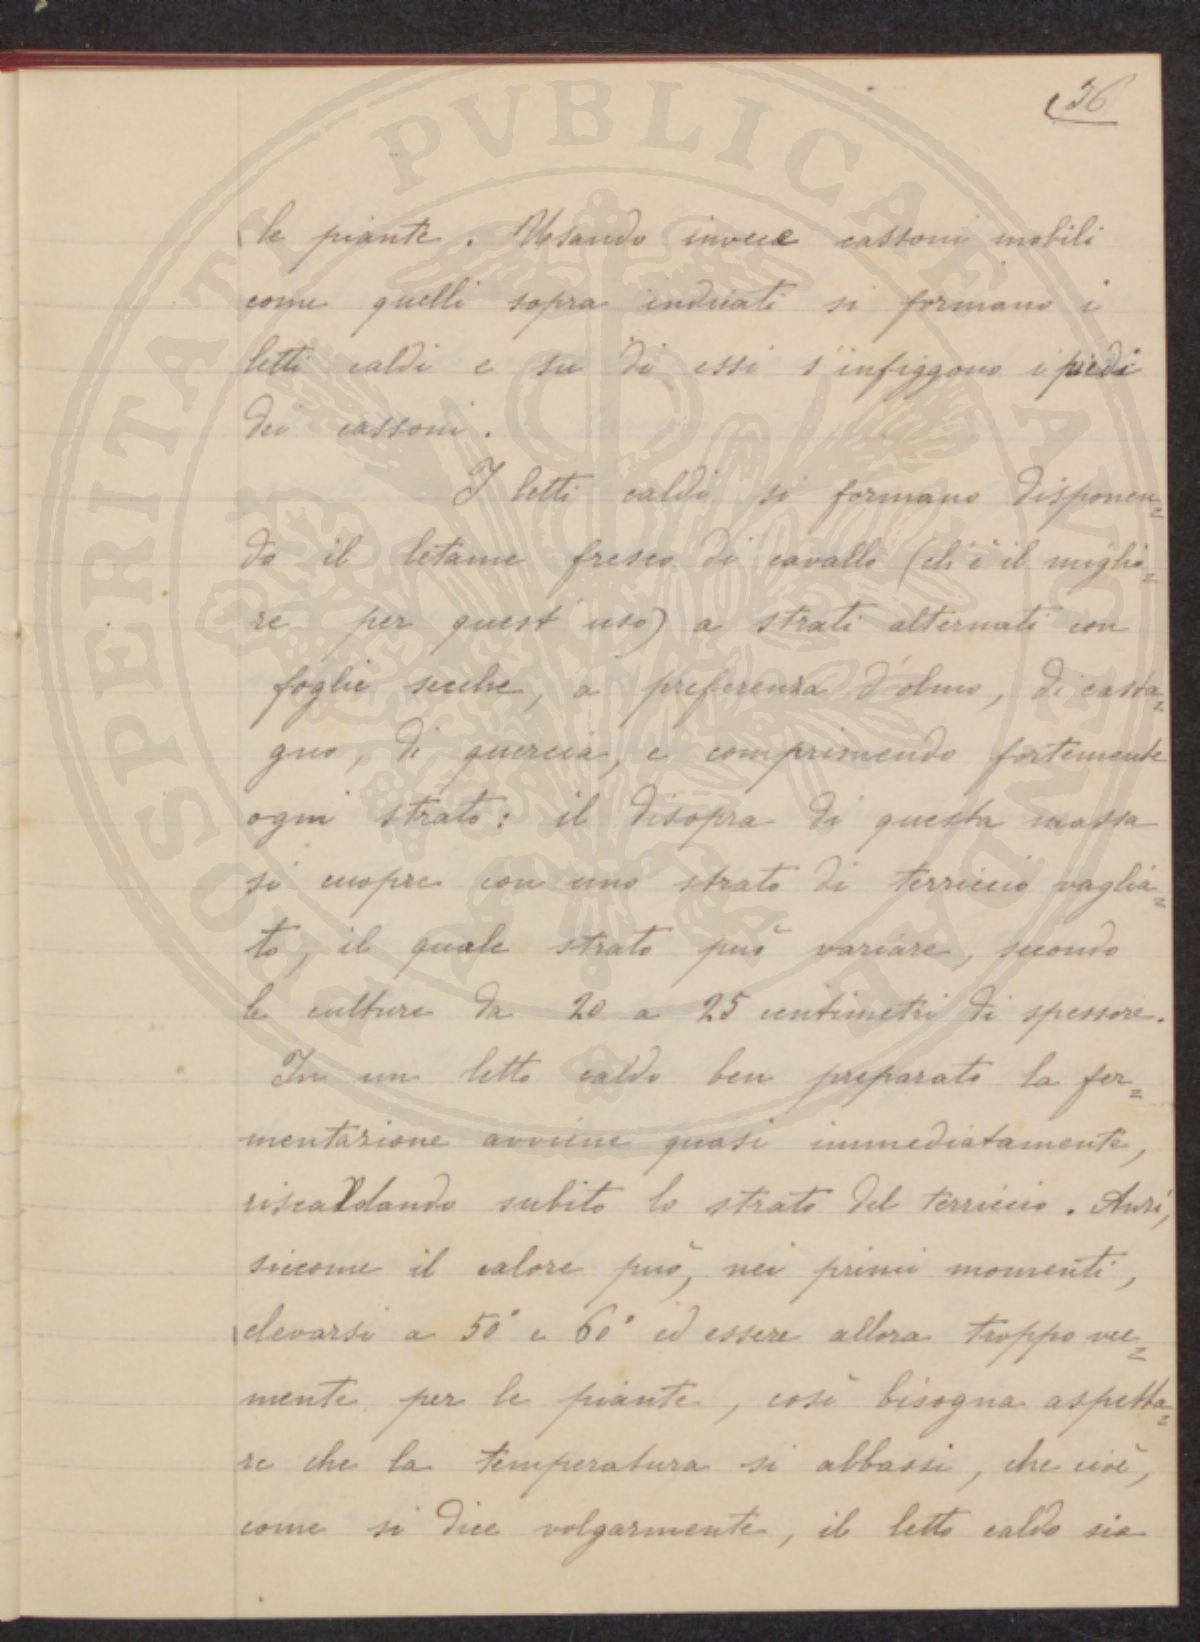 36
le piante. Usando invece cassoni mobili
come quelli sopra indicati si formano i
letti caldi e su di essi s'infiggono i piedi
dei cassoni.
I letti caldi si formano disponen=
do il letame fresco di cavallo (ch'è il miglio=
re per quest'uso) a strati alternati con
foglie secche, a preferenza d'olmo, di casta=
gno, di quercia, e comprimendo fortemente
ogni strato: il disopra di questa massa
si cuopre con uno strato di terriccio vaglia=
to, il quale strato può variare, secondo
le culture da 20 a 25 centimetri di spessore.
In un letto caldo ben preparato la fer=
mentazione avviene quasi immediatamente,
riscaldando subito lo strato del terriccio. Anzi,
siccome il calore può, nei primi momenti,
elevarsi a 50° e 60° ed essere allora troppo vee=
mente per le piante, così bisogna aspetta=
re che la temperatura si abbassi, che cioè,
come si dice volgarmente, il letto caldo sia
PROSPERITATI PVBLICAE AVGENDAE